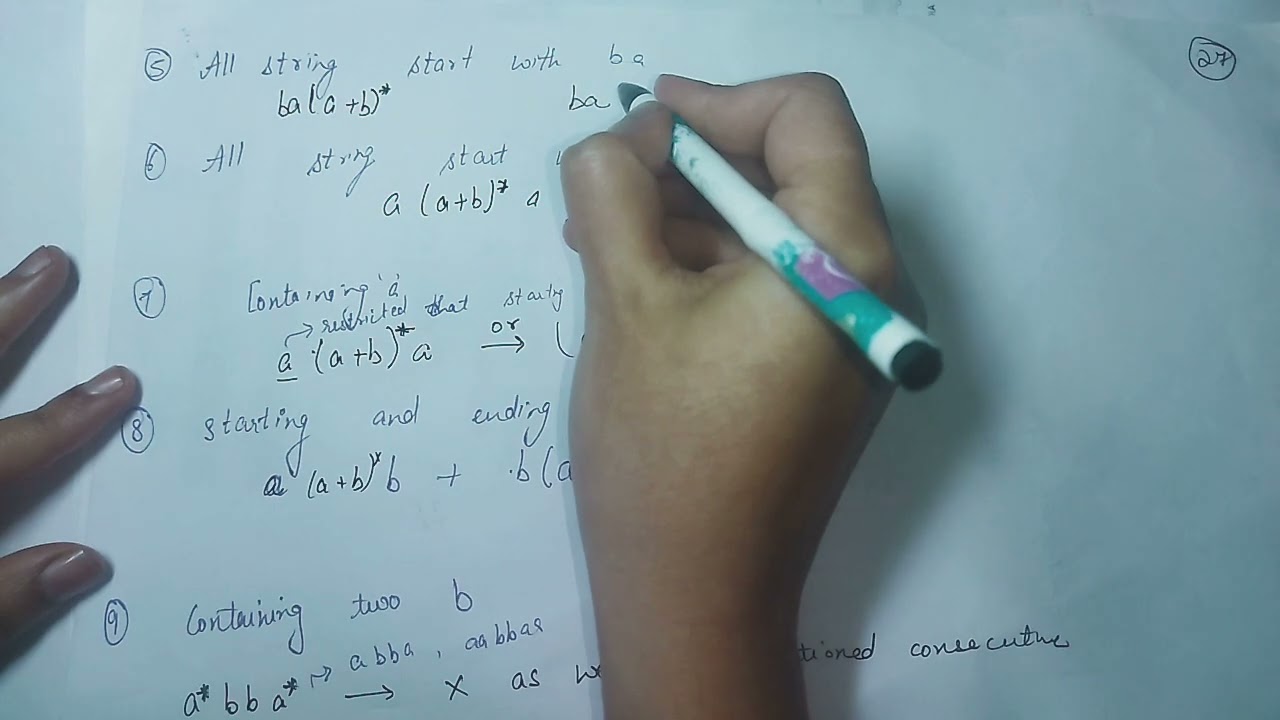 27
⑤ All string start with ba
ba(a+b)* ba
⑥ All string start
a (a+b)* a
⑦ Containeing 'a'
→ restricted that startg
a ·(a+b)* a or → (
⑧ starting and ending
a (a+b)* b + ·b(a
⑨ Containing two b
→ abba, aabbaa
a* b b a* → X as tioned consecutive